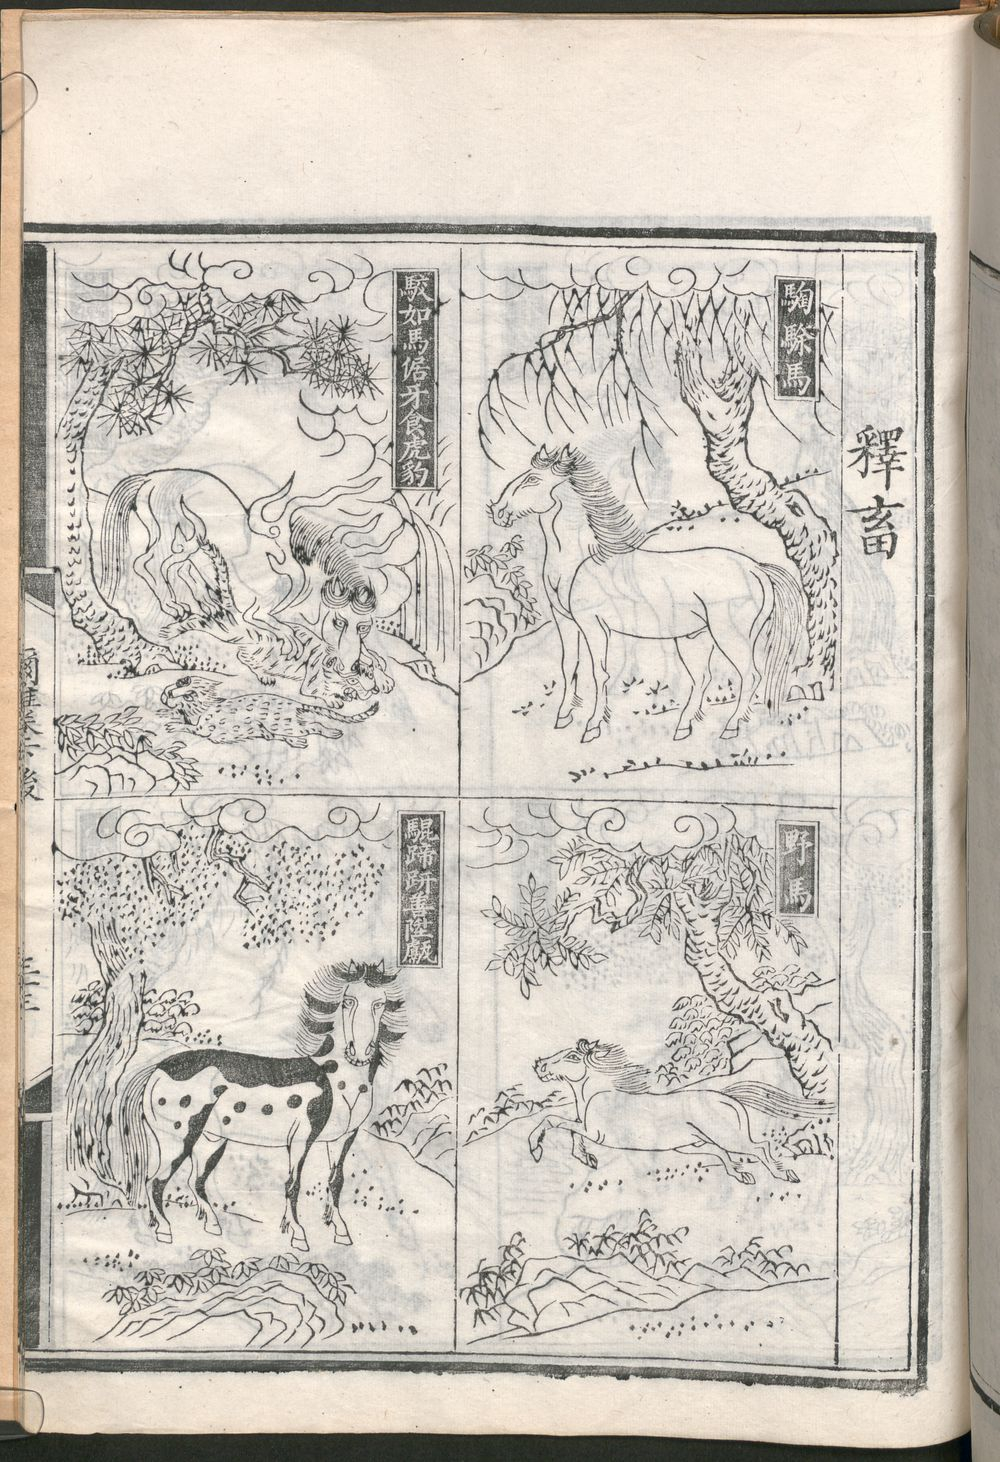 釋畜
騊駼馬
野馬
駮如馬倨牙食虎豹
騉蹄趼善陞甗
爾雅卷下後